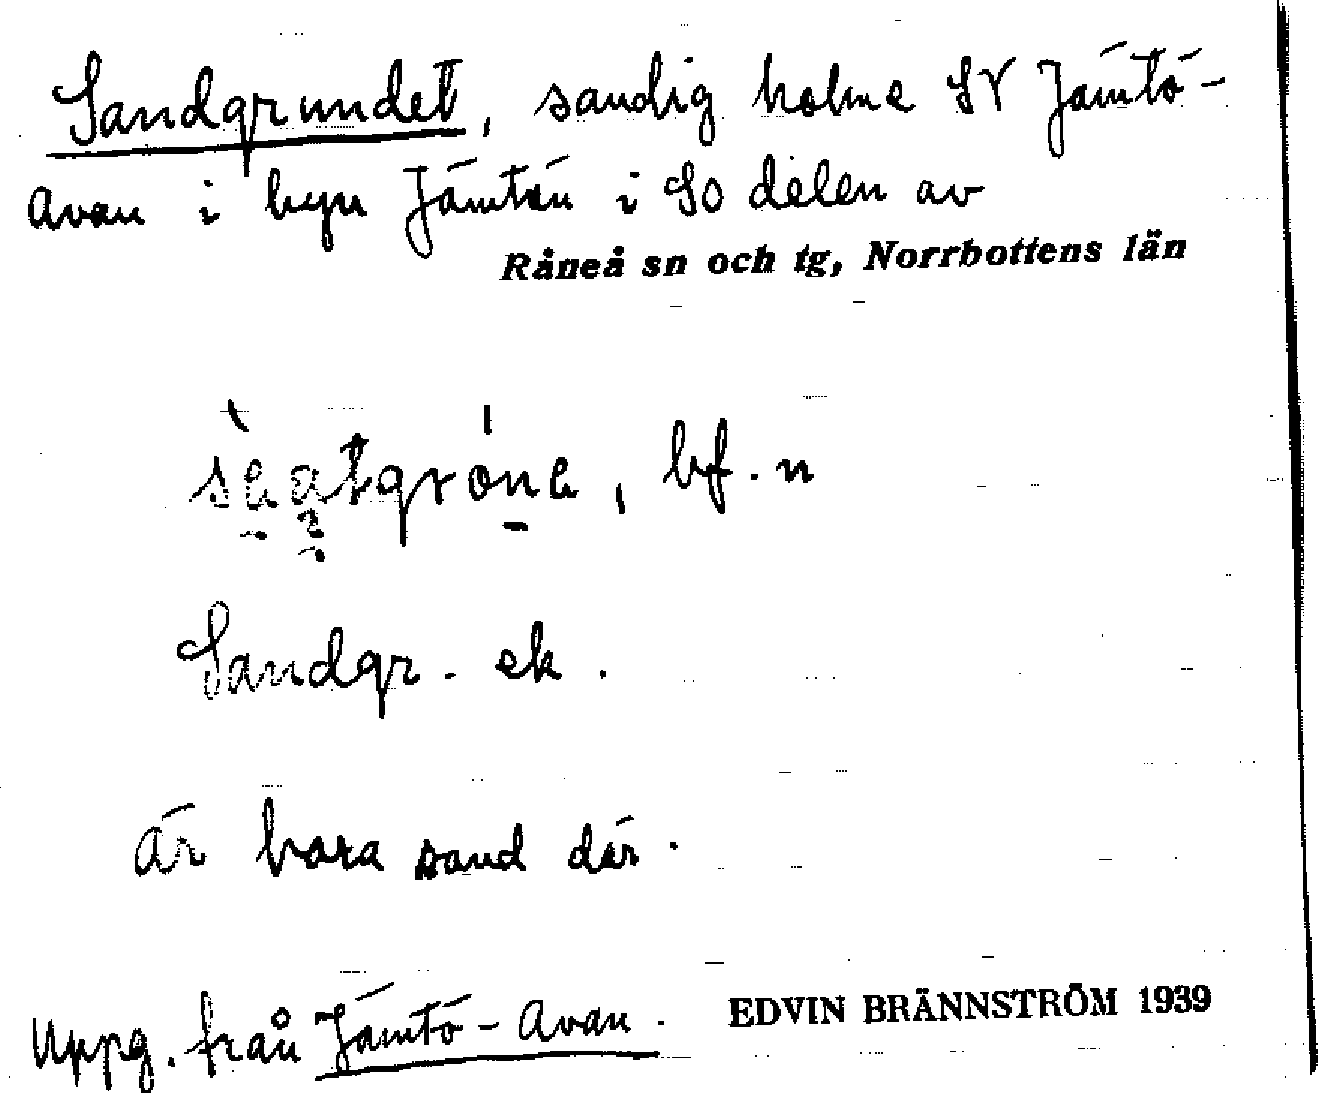 Sandgrundet, sandig holme SV Jämtö-
avan i byn Jämtön i SO delen av
Råneå sn och tg, Norrbottens län
bf. n
Sandgr - ek.
är bara sand där.
Uppg. från Jämtö-Avan. EDVIN BRÄNNSTRÖM 1939